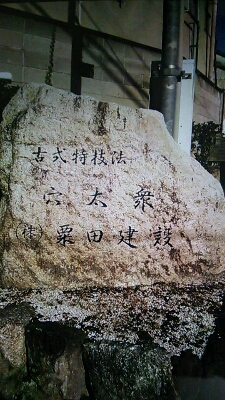 古式特技法
穴太衆
(株)粟田建設